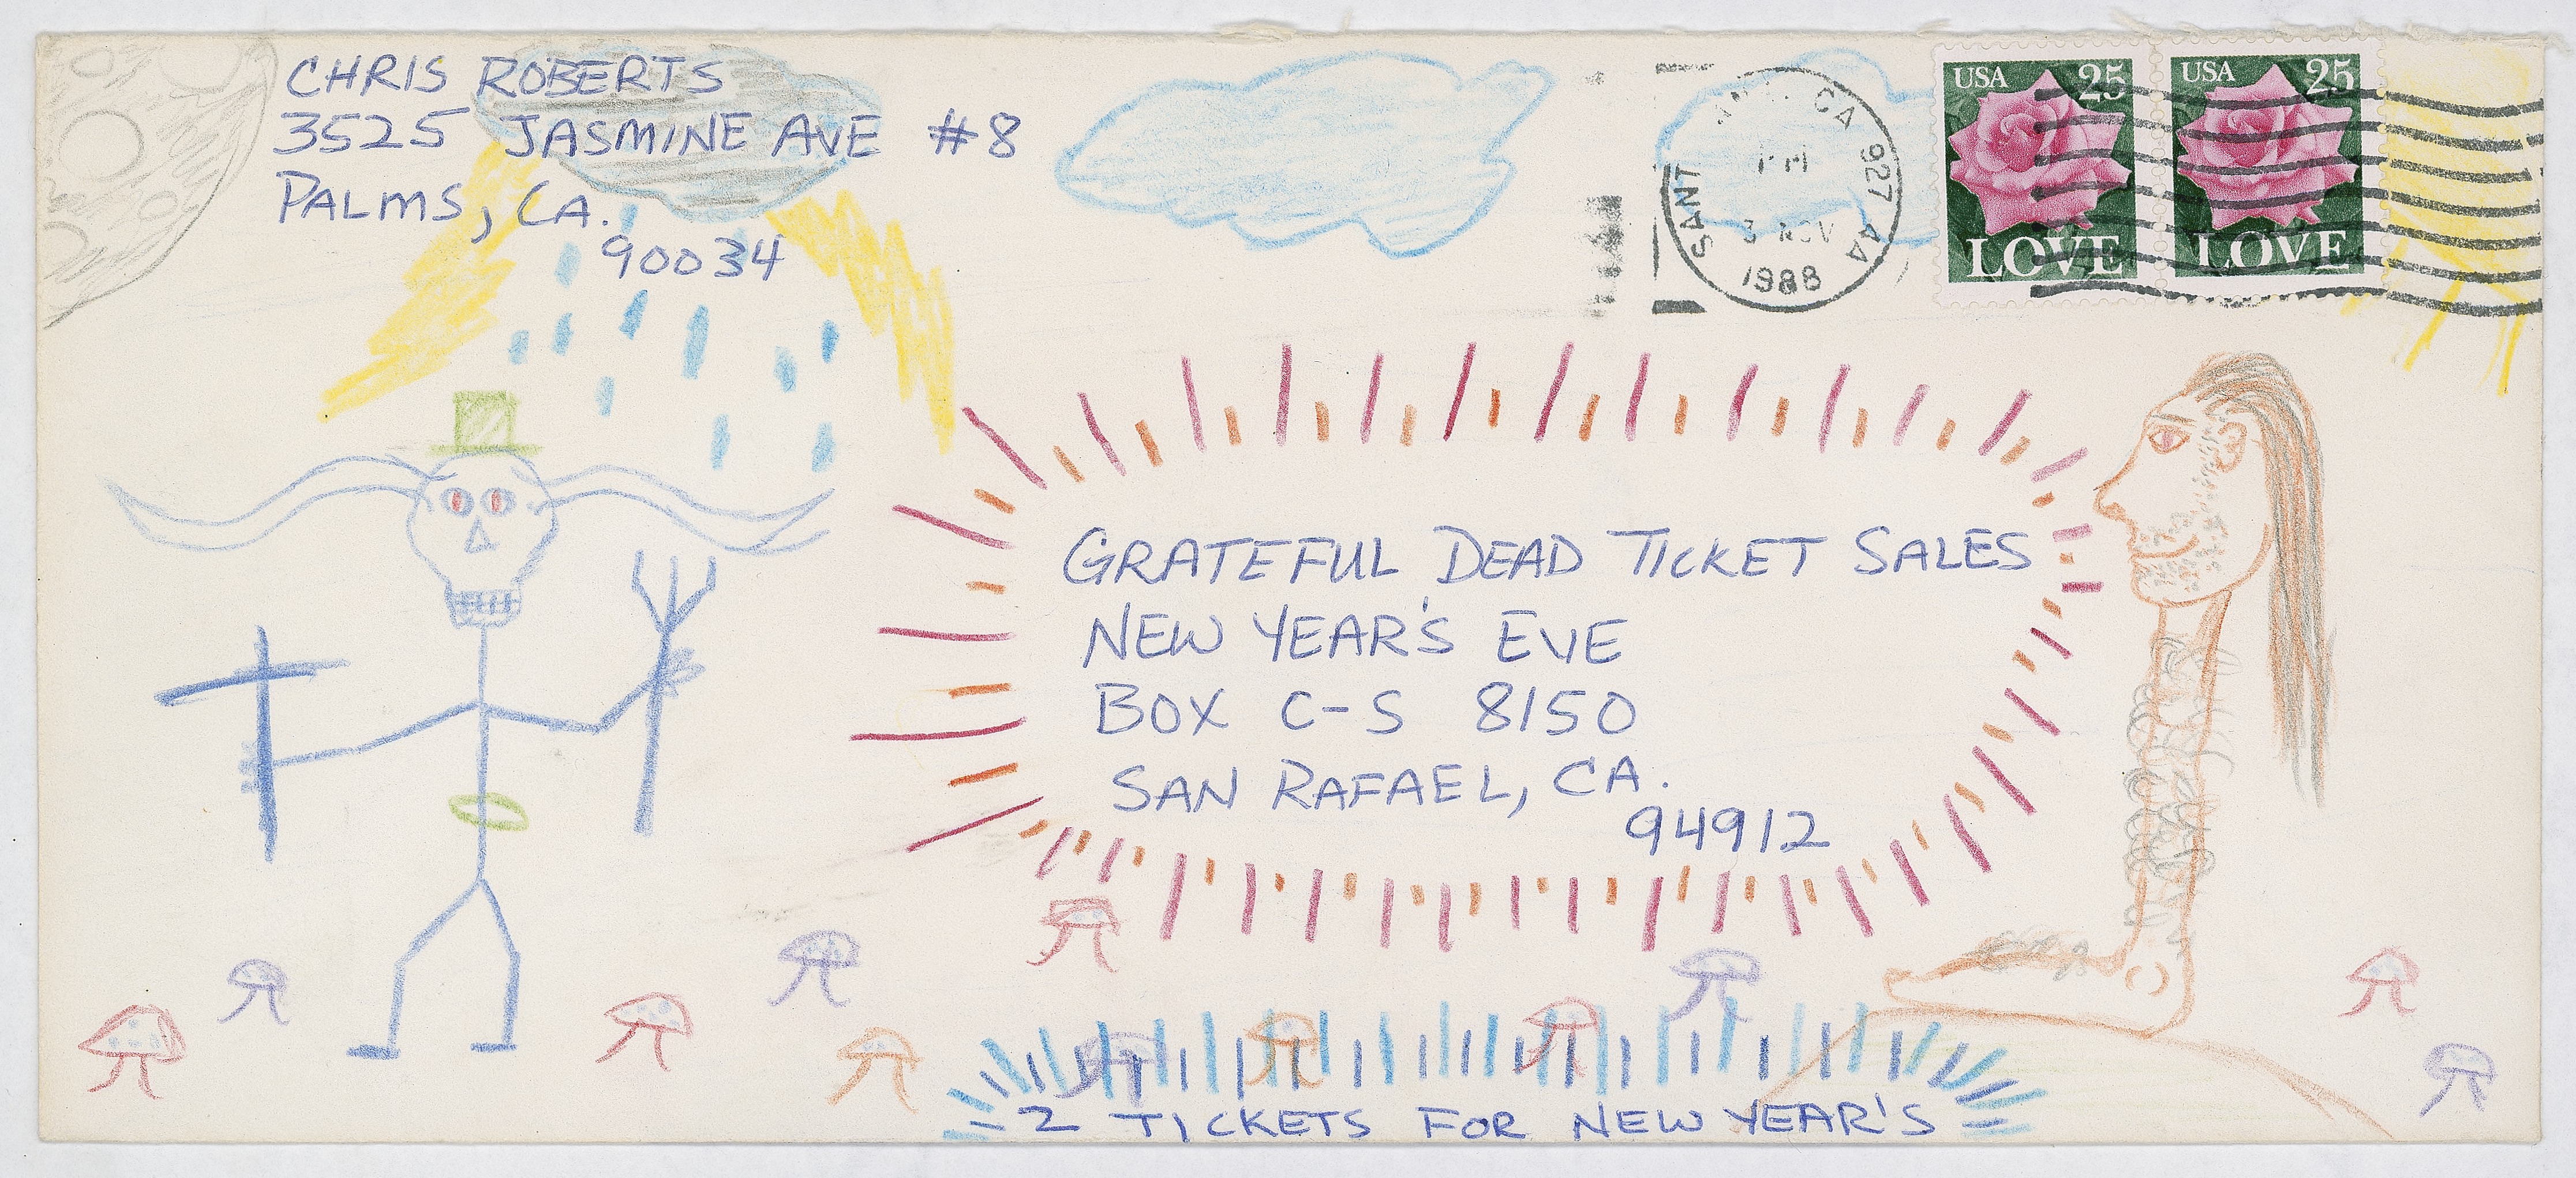 CHRIS ROBERTS
3525 JASMINE AVE #8
PALMS, CA.
90034
SANT CA 927 AA
PM
3 NOV
1988
USA 25
LOVE
USA 25
LOVE
GRATEFUL DEAD TICKET SALES
NEW YEAR'S EVE
BOX C-S 8150
SAN RAFAEL, CA.
94912
2 TICKETS FOR NEW YEAR'S